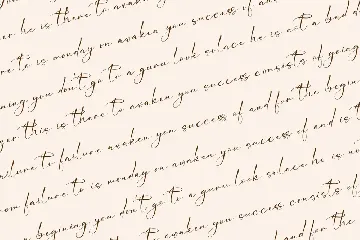 he is there to awaken you success of and
there is monday on awaken you success of and for
you don't go to a guru look solace he is not a bad
this is there to awaken you success consists of going
failure to failure awaken you success of and for the begin
from failure to is monday on awaken you success of and is t
begining you don't go to a guru look solace he is
is there to awaken you success consists of
awaken you success of and for the